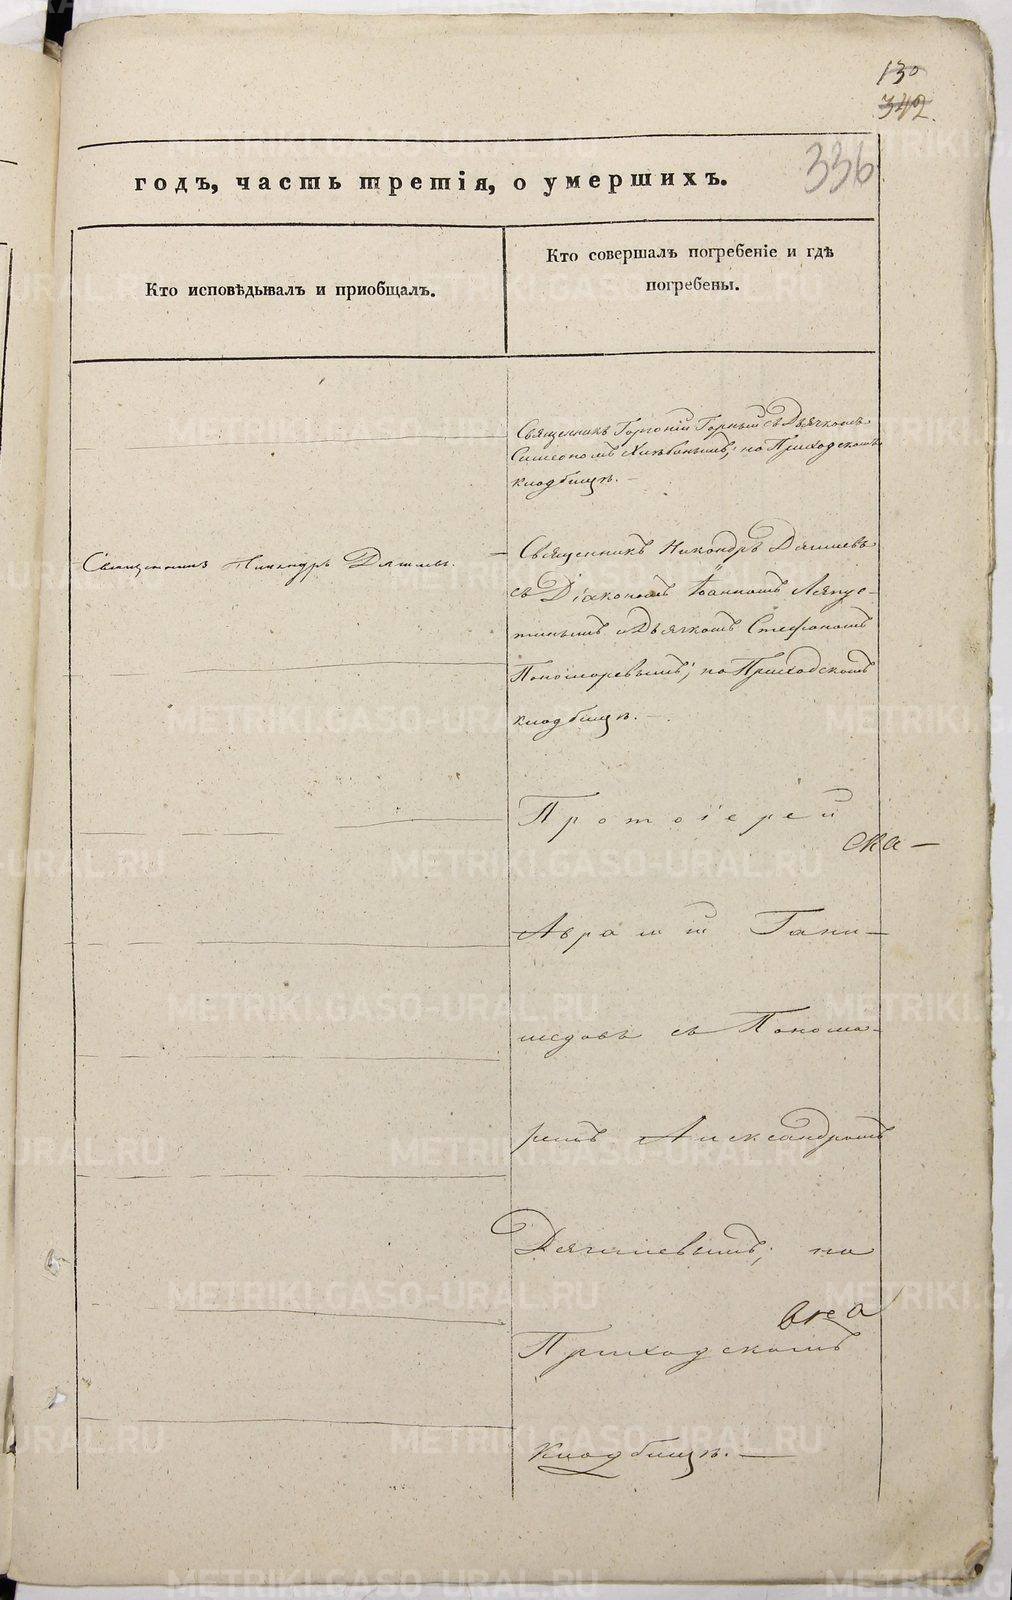 130
342.
336
годъ, часть третія, о умершихъ.
Кто исповѣдывалъ и пріобщалъ.
Кто совершалъ погребеніе и гдѣ
погребены.
Священникъ Горгоній Горный съ Дьячкомъ
Симеономъ Хлѣбинымъ; на Приходскомъ
кладбищѣ.
Священникъ Никандръ
Священникъ Никандръ
съ Діакономъ Іоанномъ Ляпус-
тинымъ и Дьячкомъ Стефаномъ
Пономаревымъ; на Приходскомъ
кладбищѣ.
Протоіерей
ска-
Аврамій Гани-
медовъ съ Понома-
ремъ Александромъ
Дягилевымъ; на
Приходскомъ
кладбищѣ.
METRIKI.GASO-URAL.RU